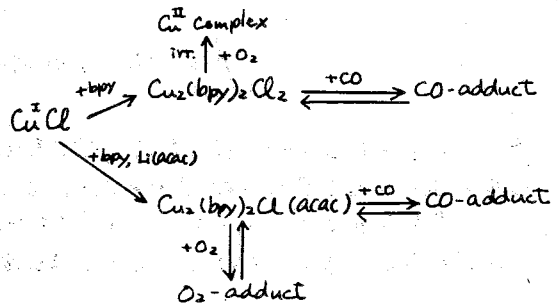 Cu^II Complex
irr. +O2
+bpy Cu2(bpy)2Cl2 +CO CO-adduct
Cu^I Cl
+bpy, Li(acac)
Cu2(bpy)2Cl(acac) +CO CO-adduct
+O2
O2-adduct